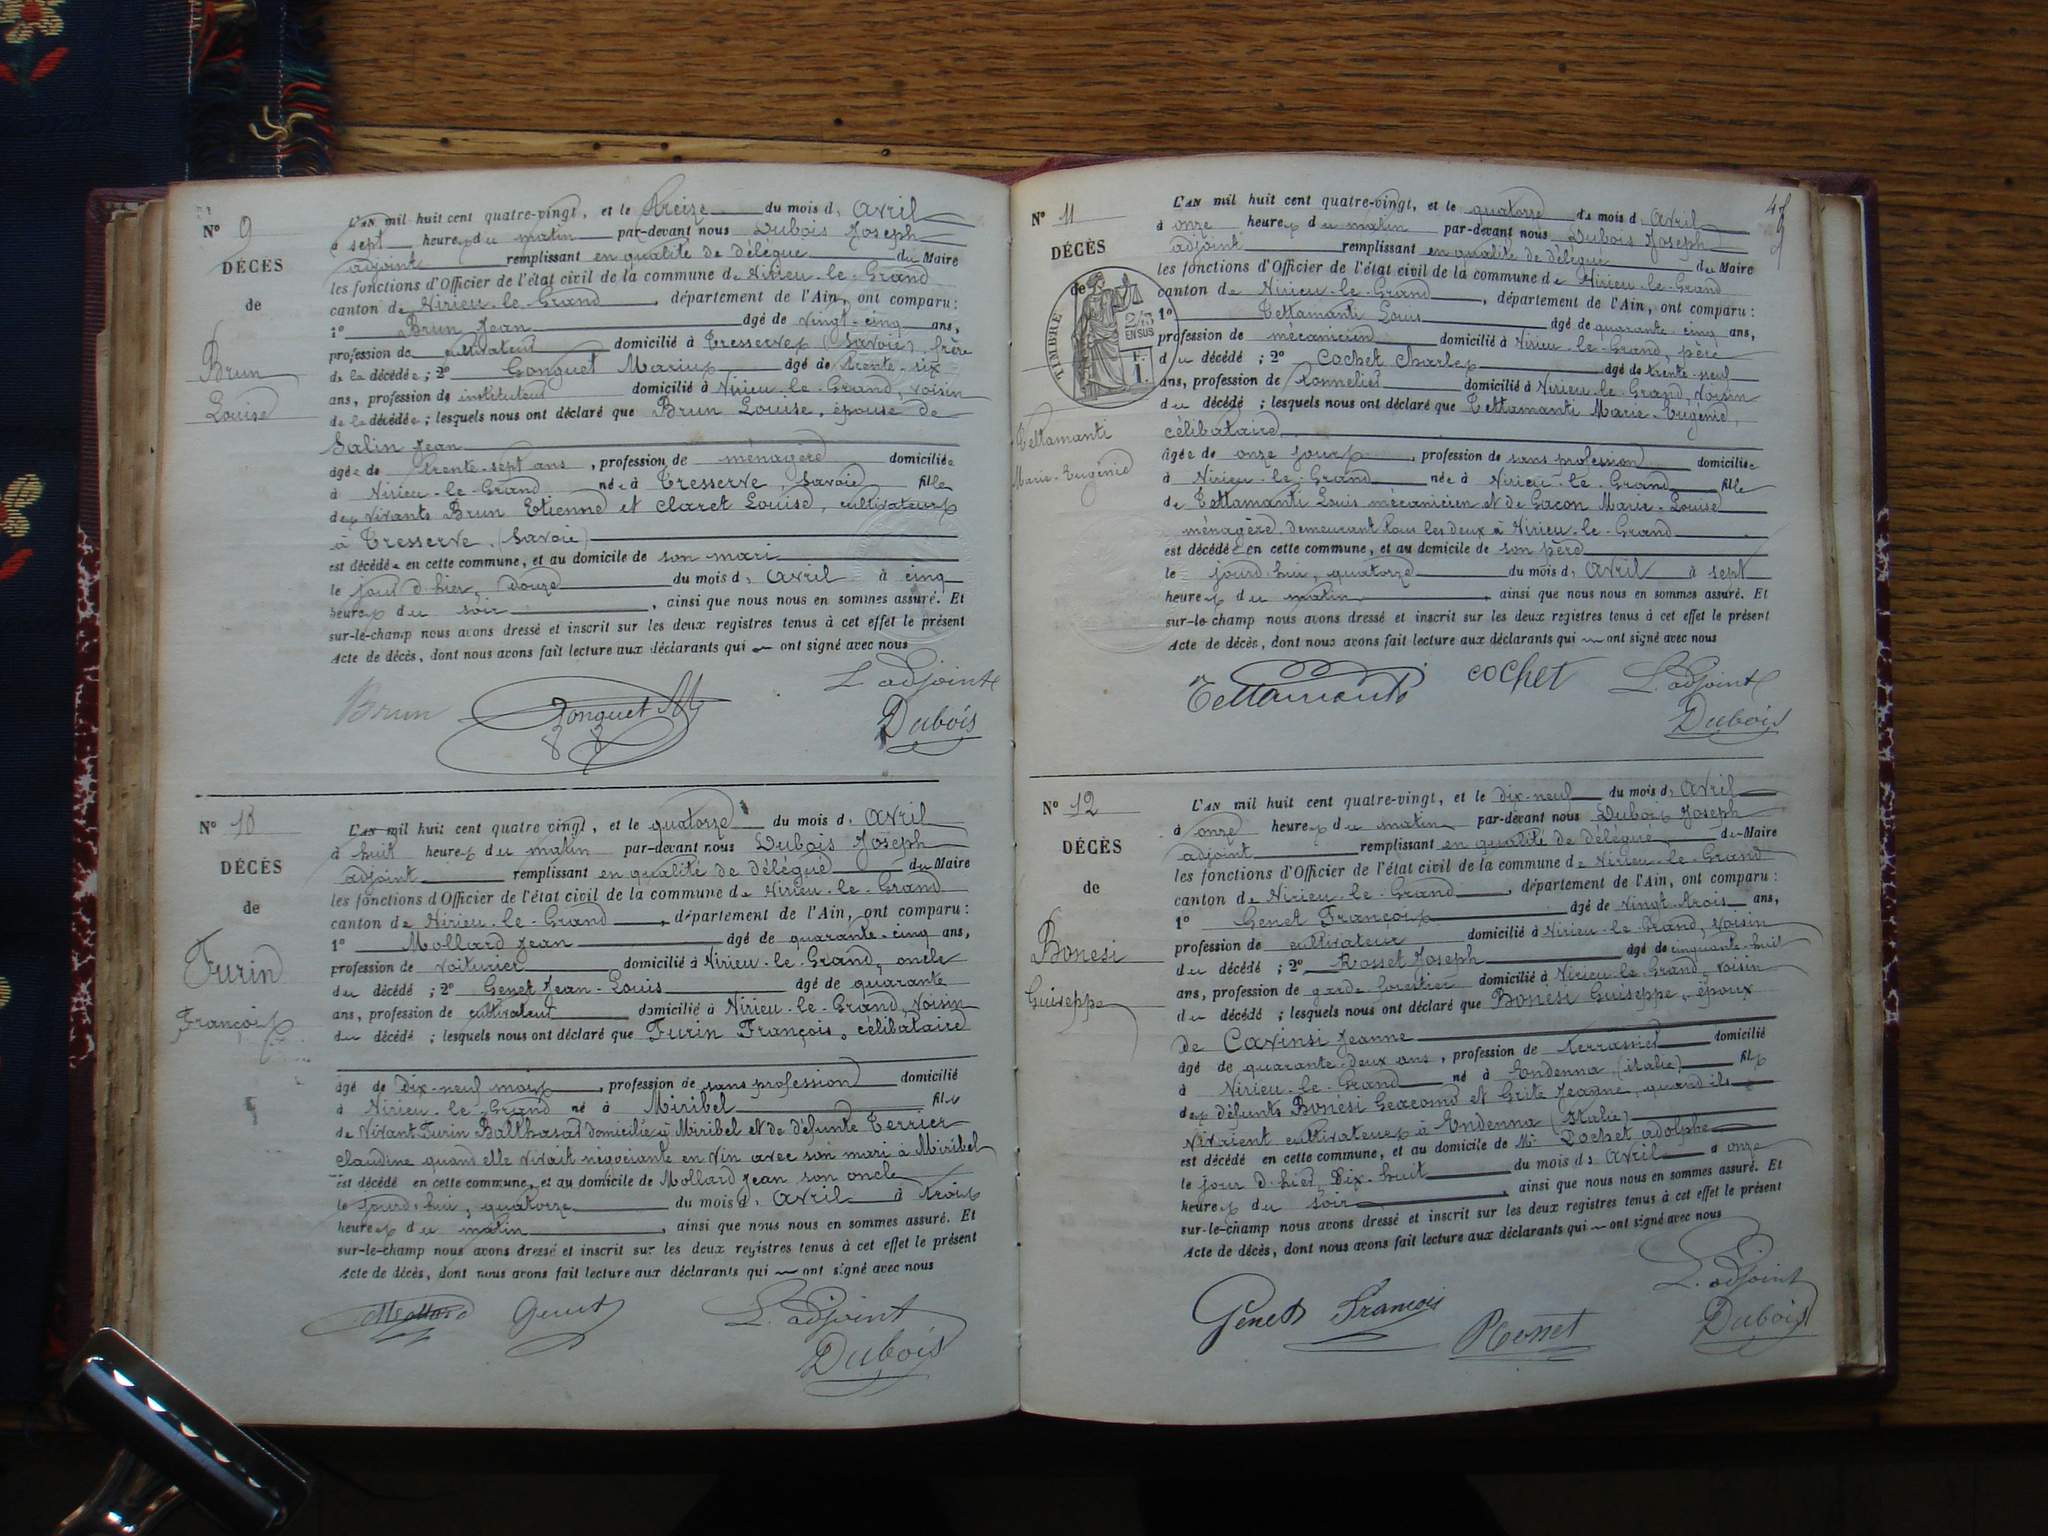 N° 9
DÉCÈS
de
Brun
Louise
L'AN mil huit cent quatre-vingt, et le treize du mois d'avril
à sept heures du matin par-devant nous Dubois Joseph
adjoint remplissant en qualité de délégué du Maire
les fonctions d'Officier de l'état civil de la commune de Virieu-le-Grand
canton de Virieu-le-Grand, département de l'Ain, ont comparu:
1° Brun Jean âgé de vingt-cinq ans,
profession de cultivateur domicilié à Tresserve (Savoie), frère
de la décédée; 2° Gonguet Marius âgé de trente-six
ans, profession de instituteur domicilié à Virieu-le-Grand, voisin
de la décédée; lesquels nous ont déclaré que Brun Louise, épouse de
Salin Jean
âgée de trente-sept ans, profession de ménagère domiciliée
à Virieu-le-Grand née à Tresserve, Savoie fille
des vivants Brun Etienne et Claret Louise, cultivateurs
à Tresserve (Savoie)
est décédée en cette commune, et au domicile de son mari
le jour d'hier, douze du mois d'avril à cinq
heures du soir, ainsi que nous nous en sommes assuré. Et
sur-le-champ nous avons dressé et inscrit sur les deux registres tenus à cet effet le présent
Acte de décès, dont nous avons fait lecture aux déclarants qui ont signé avec nous
Brun Gonguet M L'adjoint
Dubois
N° 10
DÉCÈS
de
Furin
François
L'AN mil huit cent quatre vingt, et le quatorze du mois d'avril
à huit heures du matin par-devant nous Dubois Joseph
adjoint remplissant en qualité de délégué du Maire
les fonctions d'Officier de l'état civil de la commune de Virieu-le-Grand
canton de Virieu-le-Grand, département de l'Ain, ont comparu:
1° Mollard Jean âgé de quarante-cinq ans,
profession de voiturier domicilié à Virieu-le-Grand, oncle
du décédé; 2° Genet Jean-Louis âgé de quarante
ans, profession de cultivateur domicilié à Virieu-le-Grand, voisin
du décédé; lesquels nous ont déclaré que Furin François, célibataire
âgé de dix-neuf mois, profession de sans profession domicilié
à Virieu-le-Grand né à Miribel fils
de vivant Furin Balthasar domicilié à Miribel et de défunte Terrier
Claudine quand elle vivait négociante en vin avec son mari à Miribel
est décédé en cette commune, et au domicile de Mollard Jean son oncle
le jourd'hui, quatorze du mois d'avril à trois
heures du matin, ainsi que nous nous en sommes assuré. Et
sur-le-champ nous avons dressé et inscrit sur les deux registres tenus à cet effet le présent
Acte de décès, dont nous avons fait lecture aux déclarants qui ont signé avec nous
Mollard Genet L'adjoint
Dubois
N° 11
DÉCÈS
de
TIMBRE
2/10
EN SUS
1 F.
Tettamanti
Marie-Eugénie
L'AN mil huit cent quatre-vingt, et le quatorze du mois d'avril
à onze heures du matin par-devant nous Dubois Joseph
adjoint remplissant en qualité de délégué du Maire
les fonctions d'Officier de l'état civil de la commune de Virieu-le-Grand
canton de Virieu-le-Grand, département de l'Ain, ont comparu:
1° Tettamanti Louis âgé de quarante-cinq ans,
profession de mécanicien domicilié à Virieu-le-Grand, père
du décédé; 2° Cochet Charles âgé de trente-neuf
ans, profession de tonnelier domicilié à Virieu-le-Grand, voisin
du décédé; lesquels nous ont déclaré que Tettamanti Marie-Eugénie,
célibataire
âgée de onze jours, profession de sans profession domiciliée
à Virieu-le-Grand née à Virieu-le-Grand fille
de Tettamanti Louis mécanicien et de Gacon Marie-Louise
ménagère demeurant tous les deux à Virieu-le-Grand
est décédée en cette commune, et au domicile de son père
le jourd'hui, quatorze du mois d'avril à sept
heures du matin, ainsi que nous nous en sommes assuré. Et
sur-le-champ nous avons dressé et inscrit sur les deux registres tenus à cet effet le présent
Acte de décès, dont nous avons fait lecture aux déclarants qui ont signé avec nous
Tettamanti cochet L'adjoint
Dubois
N° 12
DÉCÈS
de
Bonesi
Guiseppe
L'AN mil huit cent quatre-vingt, et le dix-neuf du mois d'avril
à onze heures du matin par-devant nous Dubois Joseph
adjoint remplissant en qualité de délégué du Maire
les fonctions d'Officier de l'état civil de la commune de Virieu-le-Grand
canton de Virieu-le-Grand, département de l'Ain, ont comparu:
1° Genet François âgé de vingt-trois ans,
profession de cultivateur domicilié à Virieu-le-Grand, voisin
du décédé; 2° Rosset Joseph âgé de cinquante-huit
ans, profession de garde-forestier domicilié à Virieu-le-Grand, voisin
du décédé; lesquels nous ont déclaré que Bonesi Guiseppe, époux
de Cavinsi Jeanne
âgé de quarante-deux ans, profession de terrassier domicilié
à Virieu-le-Grand né à Endenna (italie) fils
des défunts Bonesi Geacomo et Grite Jeanne, quand ils
vivaient cultivateurs à Endenna (Italie)
est décédé en cette commune, et au domicile de Mr Pochet adolphe
le jour d'hier, Dix-huit du mois d'avril à onze
heures du soir, ainsi que nous nous en sommes assuré. Et
sur-le-champ nous avons dressé et inscrit sur les deux registres tenus à cet effet le présent
Acte de décès, dont nous avons fait lecture aux déclarants qui ont signé avec nous
Genet François Rosset L'adjoint
Dubois